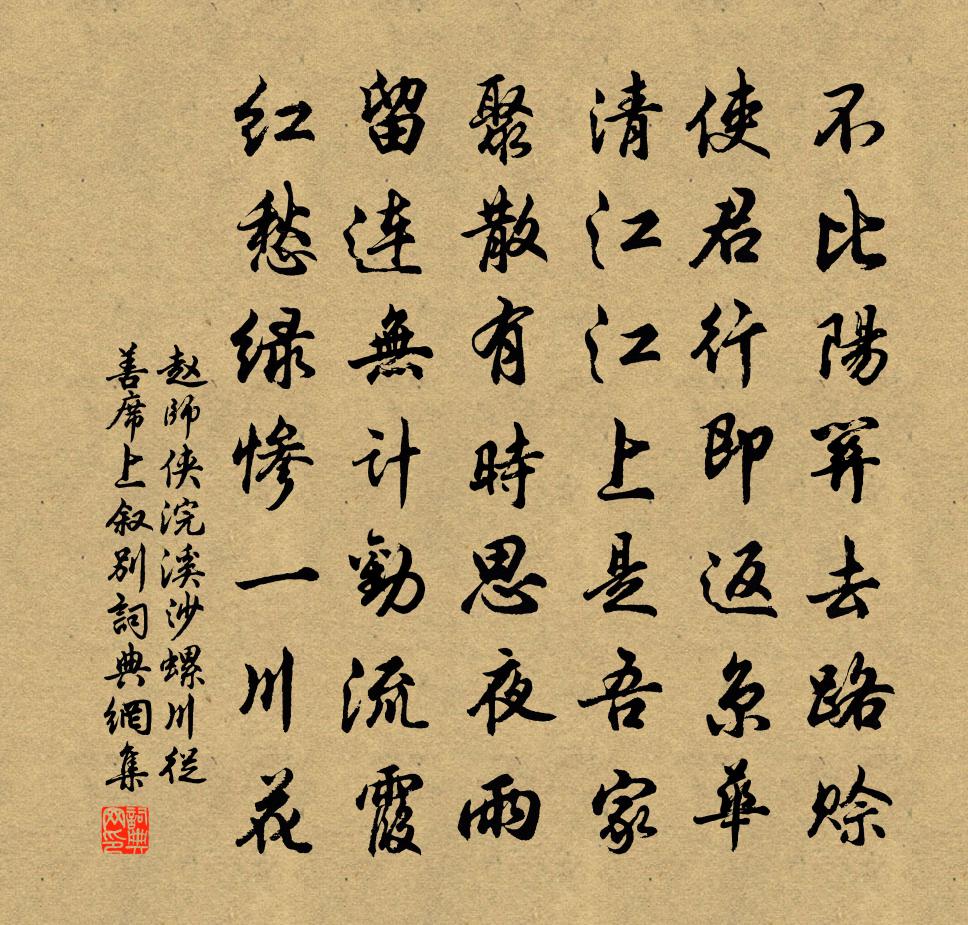 不比陽關去路賒
使君行即返京華
清江江上是吾家
聚散有時思夜雨
留連無計勸流霞
紅愁緑慘一川花
赵師侠浣溪沙螺川從
善席上叙别詞典網集
詞典网印